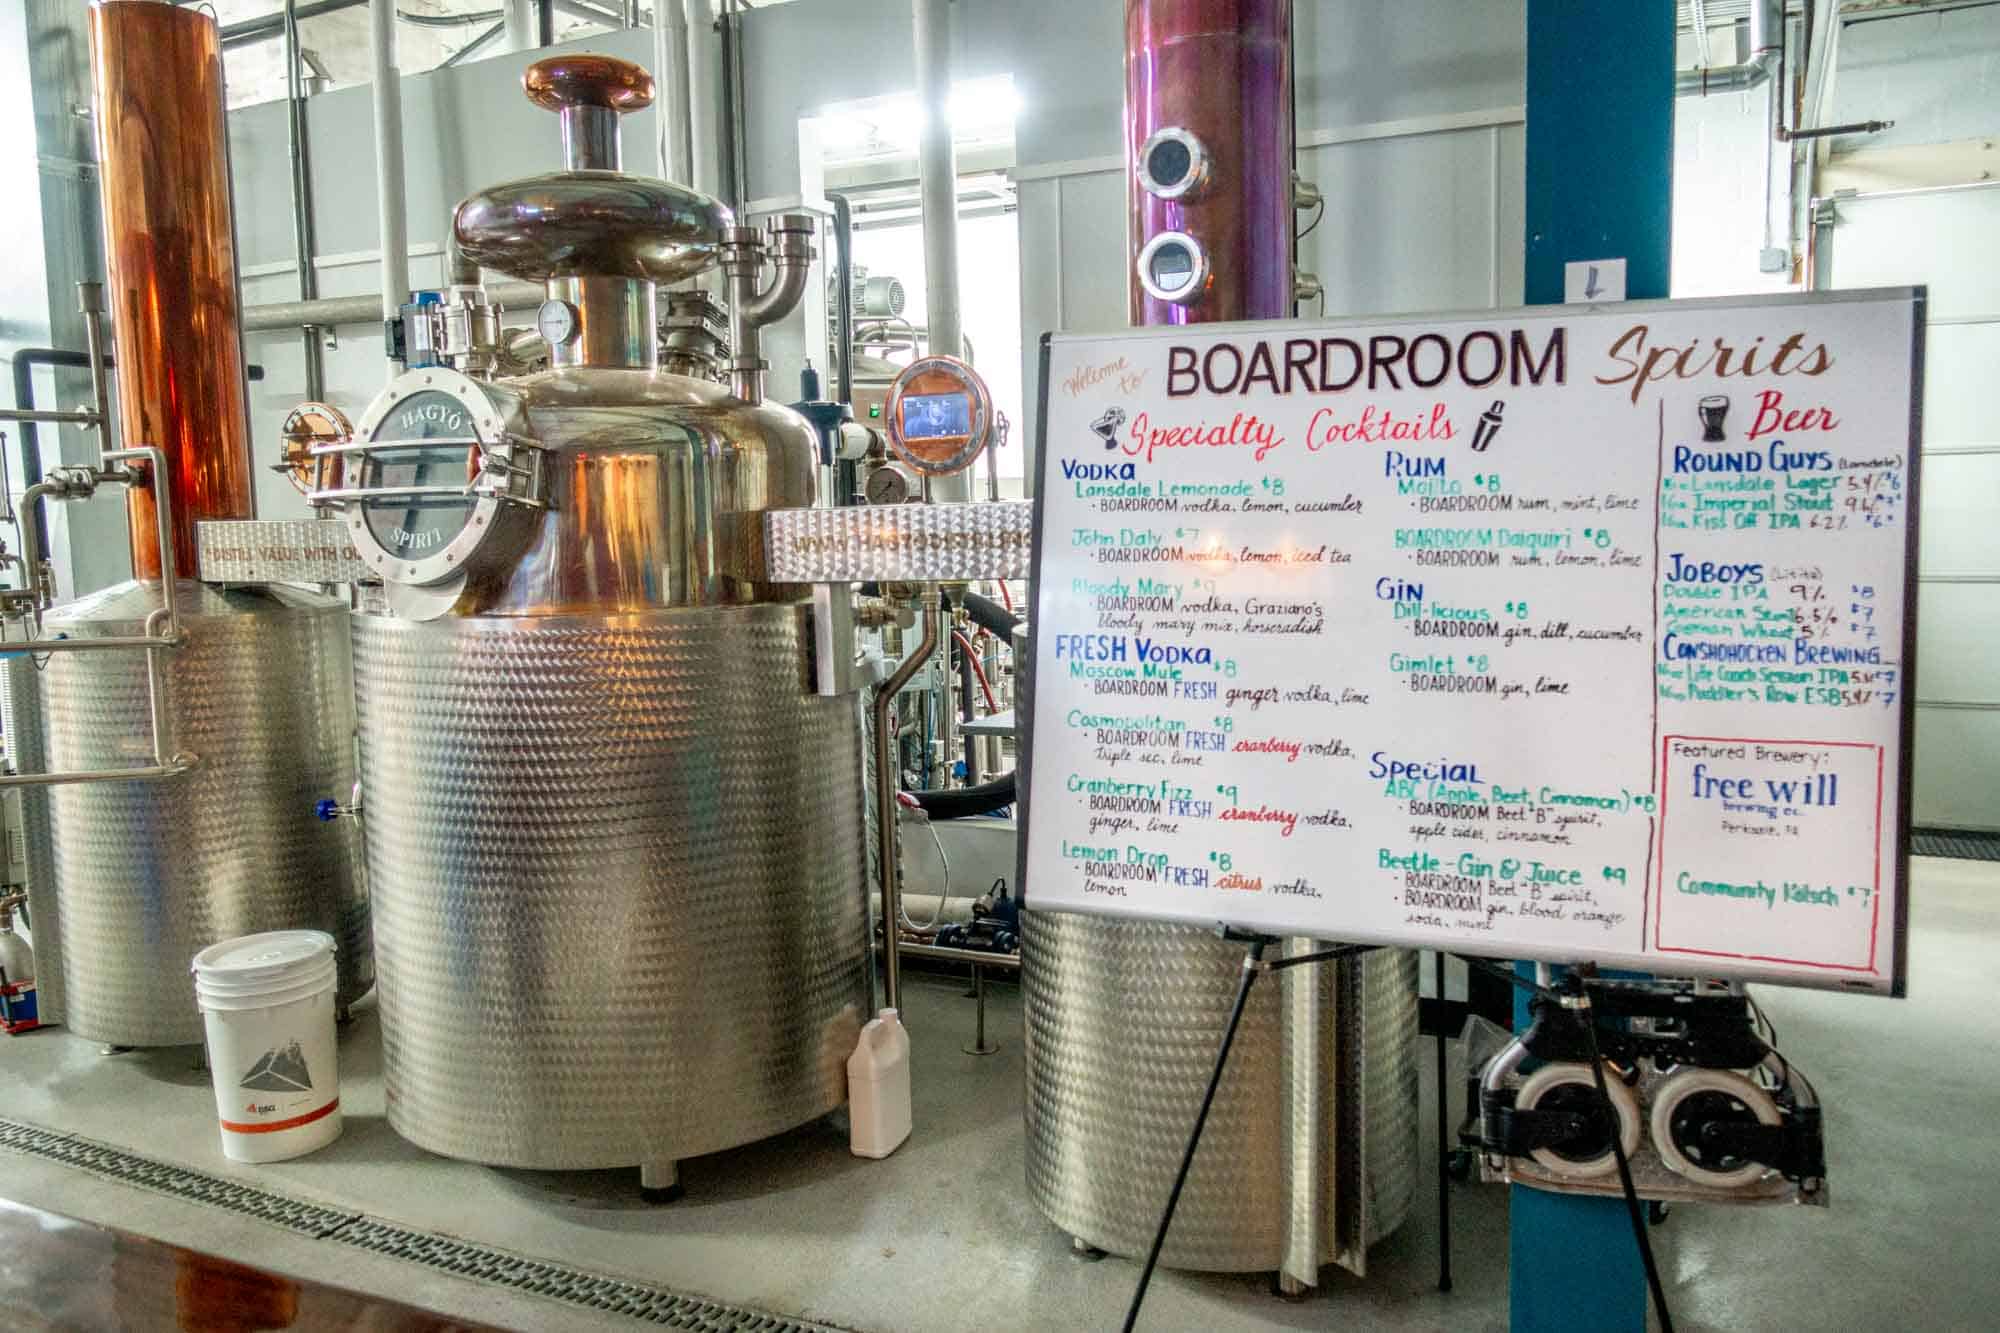 HAGYÓ
SPIRIT
DISTILL VALUE WITH OU
Welcome to
BOARDROOM Spirits
Specialty Cocktails
VODKA
Lansdale Lemonade $8
• BOARDROOM vodka, lemon, cucumber
John Daly $7
• BOARDROOM vodka, lemon, iced tea
Bloody Mary $9
• BOARDROOM vodka, Graziano's
bloody mary mix, horseradish
FRESH VODKA
Moscow Mule $8
• BOARDROOM FRESH ginger vodka, lime
Cosmopolitan $8
• BOARDROOM FRESH cranberry vodka,
triple sec, lime
Cranberry Fizz $9
• BOARDROOM FRESH cranberry vodka,
ginger, lime
Lemon Drop $8
• BOARDROOM FRESH citrus vodka,
lemon
RUM
Mojito $8
• BOARDROOM rum, mint, lime
BOARDROOM Daiquiri $8
• BOARDROOM rum, lemon, lime
GIN
Dill-licious $8
• BOARDROOM gin, dill, cucumber
Gimlet $8
• BOARDROOM gin, lime
SPECIAL
ABC (Apple, Beet, Cinnamon) $8
• BOARDROOM Beet "B" spirit,
apple cider, cinnamon
Beetle-Gin & Juice $9
• BOARDROOM Beet "B" spirit,
• BOARDROOM gin, blood orange
soda, mint
Beer
ROUND GUYS (Lansdale)
Lansdale Lager 5.4% $6
16oz Imperial Stout
16oz Kiss Off IPA 6.2% $6
JOBOYS (Lititz)
Double IPA 9% $8
American Stout 6.5% $7
German Wheat 5% $7
CONSHOHOCKEN BREWING
Session IPA $7
16oz Puddler's Row ESB 5.4% $7
Featured Brewery:
free will
brewing co.
Perkasie, PA
Community Kölsch $7